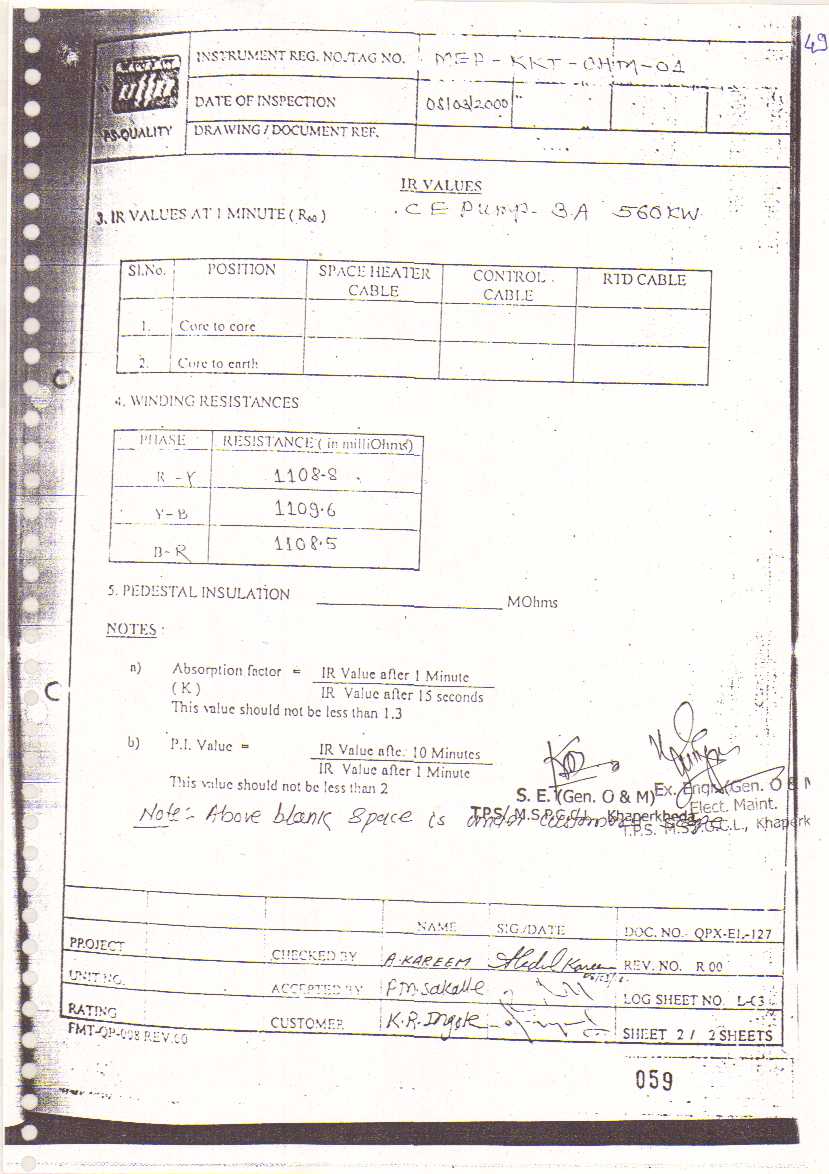 49
INSTRUMENT REG. NO./TAG NO. MEP-KKT-OHM-01
PS-QUALITY
DATE OF INSPECTION 08/03/2000
DRAWING / DOCUMENT REF.
IR VALUES
3. IR VALUES AT 1 MINUTE ( R60 ) CE Pump- 3A 560KW
Sl.No. POSITION SPACE HEATER CABLE CONTROL CABLE RTD CABLE
1. Core to core
2. Core to earth
4. WINDING RESISTANCES
PHASE RESISTANCE ( in milliOhms)
R - Y 1108.8
Y - B 1109.6
B - R 1108.5
5. PEDESTAL INSULATION ____________ MOhms
NOTES :
a) Absorption factor = IR Value after 1 Minute
( K ) IR Value after 15 seconds
This value should not be less than 1.3
b) P.I. Value = IR Value afte. 10 Minutes
IR Value after 1 Minute
This value should not be less than 2
S. E. (Gen. O & M)
T.P.S. M.S.P.G.C.L. Khaperkheda
Ex. Engr. (Gen. O & M
Elect. Maint.
T.P.S. M.S.P.G.C.L., Khaperk
Note:- Above blank space is under customer scope
NAME SIG./DATE DOC. NO.- QPX-EL-127
PROJECT CHECKED BY A.KAREEM Abdul Kareem REV. NO. R 00
UNIT NO. ACCEPTED BY P.M. Sakalle LOG SHEET NO. L-03
RATING CUSTOMER K.R. Ingole SHEET 2 / 2 SHEETS
FMT-QP-008 REV.00
059